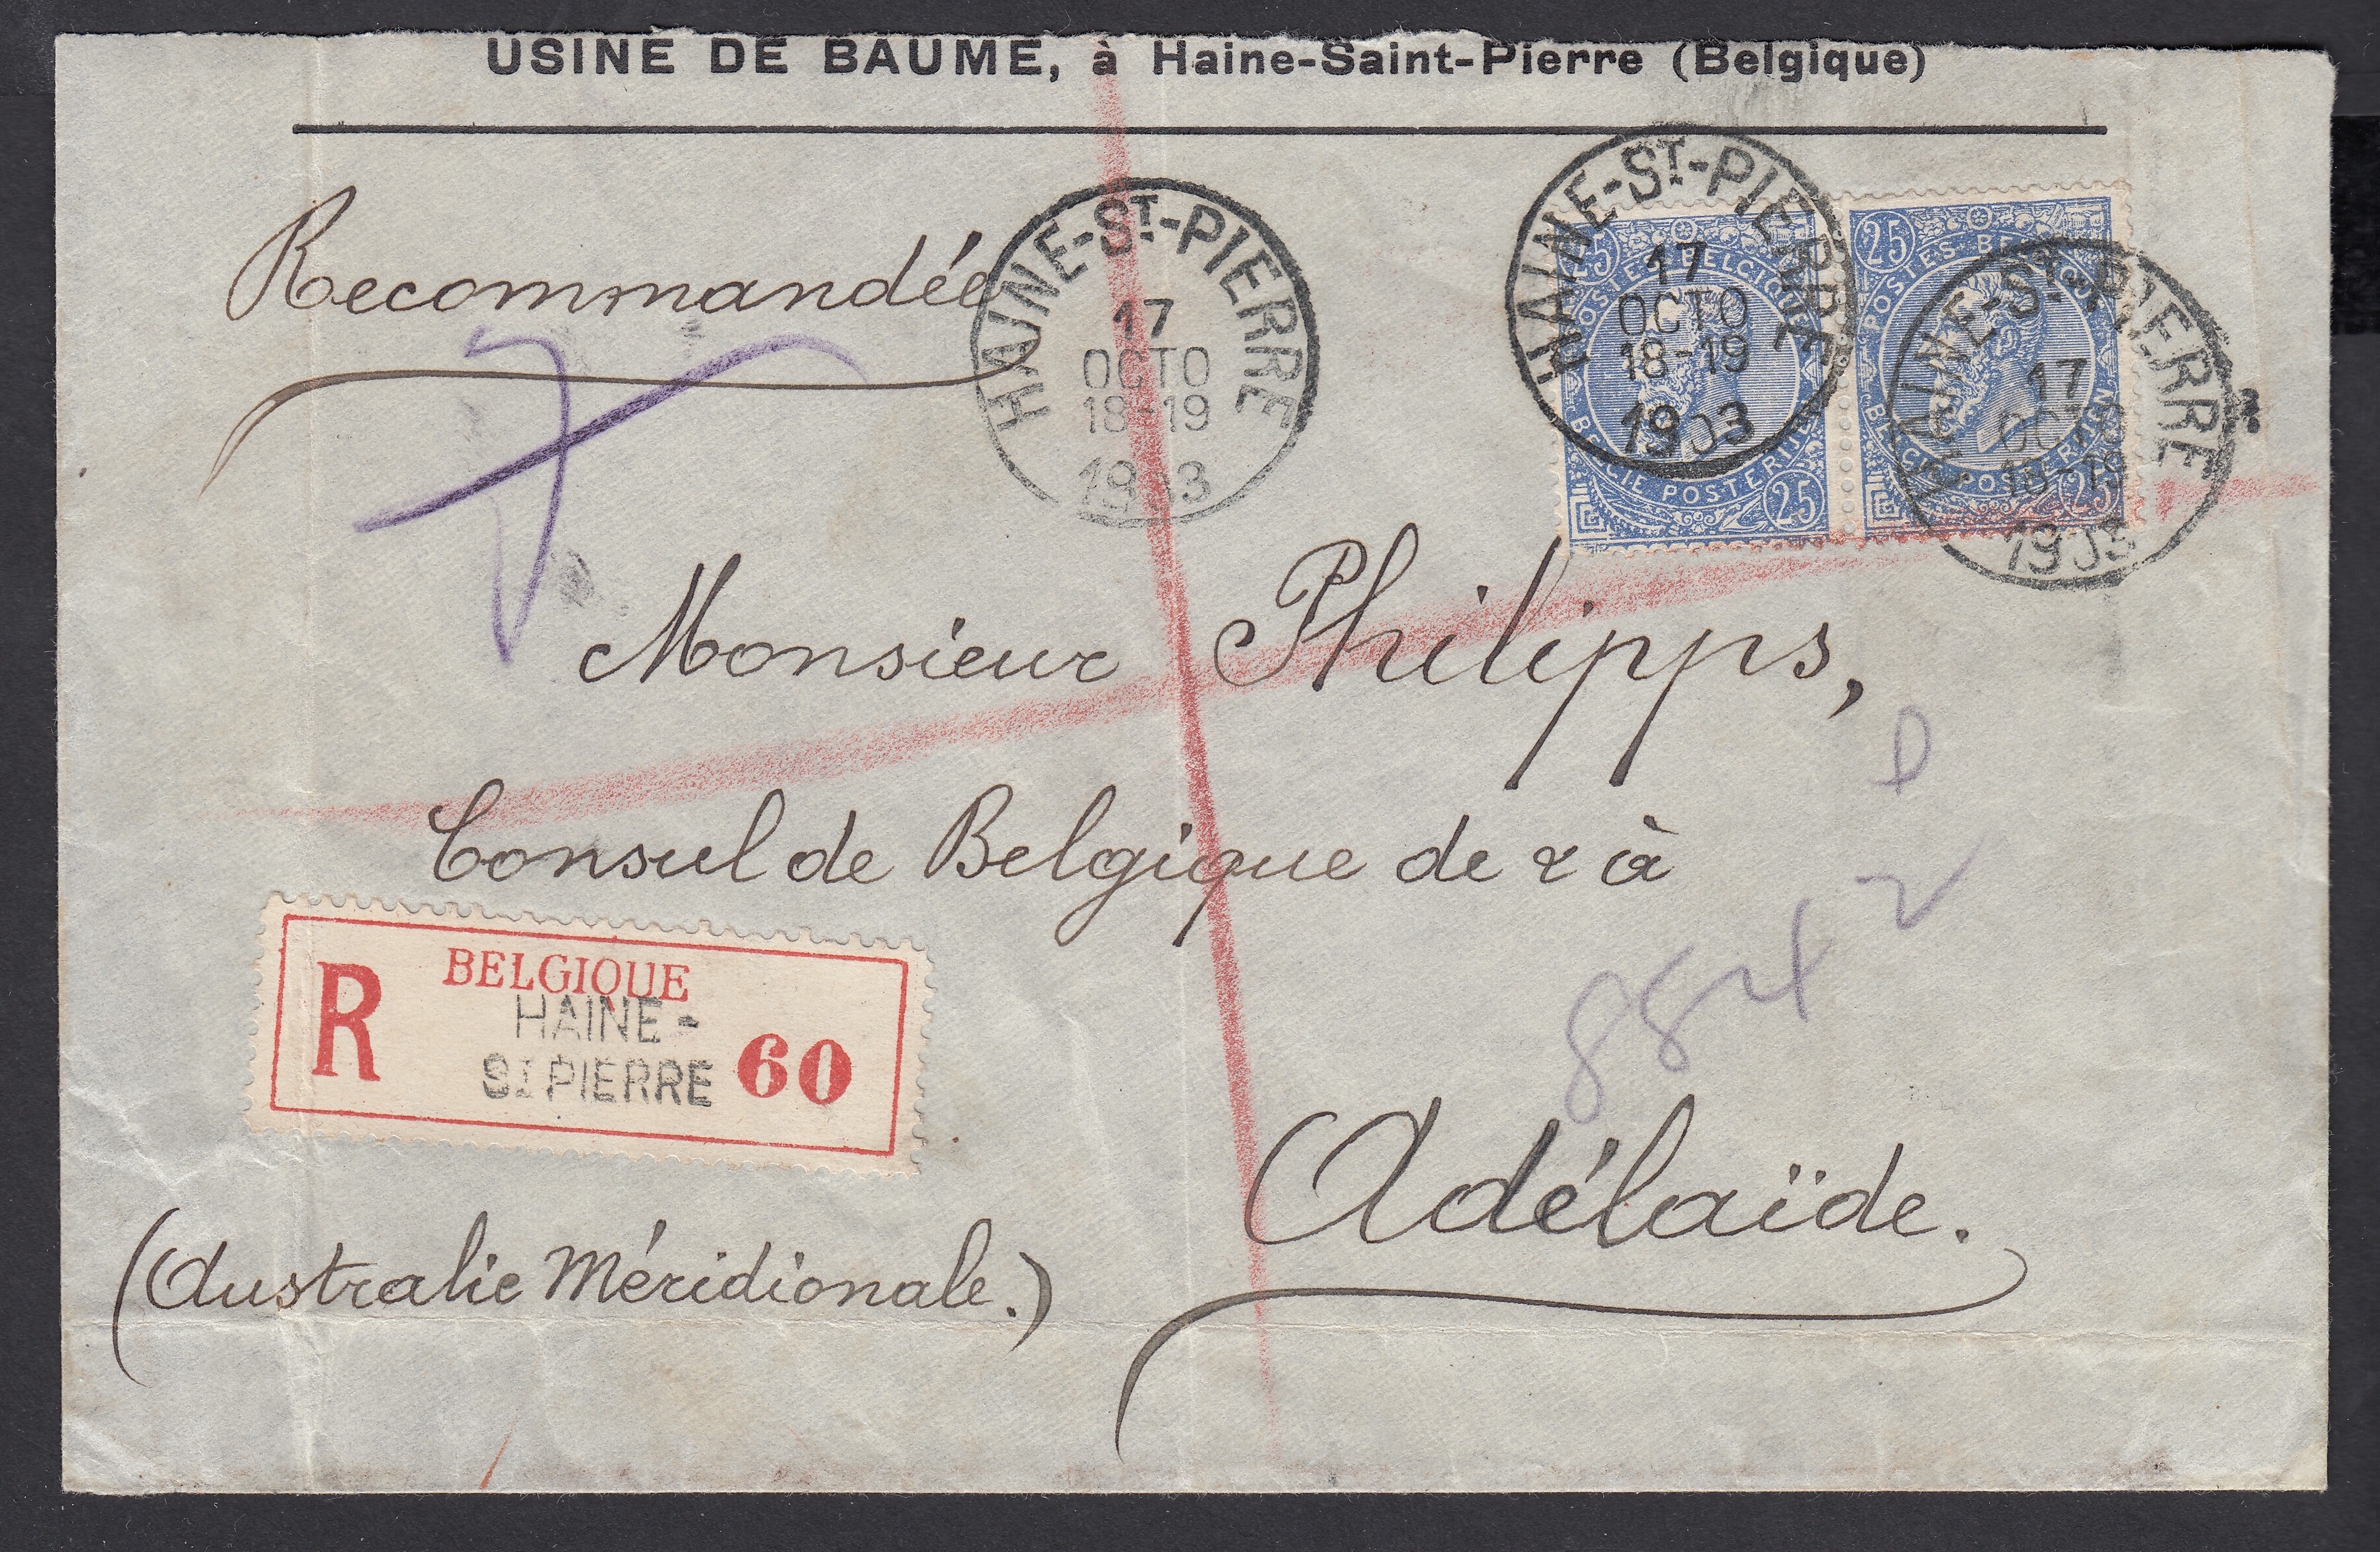 USINE DE BAUME, à Haine-Saint-Pierre (Belgique)
Recommandée
HAINE-ST-PIERRE
17
OCTO
18-19
1903
HAINE-ST-PIERRE
17
OCTO
18-19
1903
HAINE-ST-PIERRE
17
OCTO
18-19
1903
25
POSTES BELGIQUE
BELGIE POSTERIJEN
25
25
POSTES BELGIQUE
BELGIE POSTERIJEN
25
Monsieur Philipps,
Consul de Belgique de & à
R
BELGIQUE
HAINE-
ST PIERRE
60
Adélaïde.
(Australie Méridionale.)